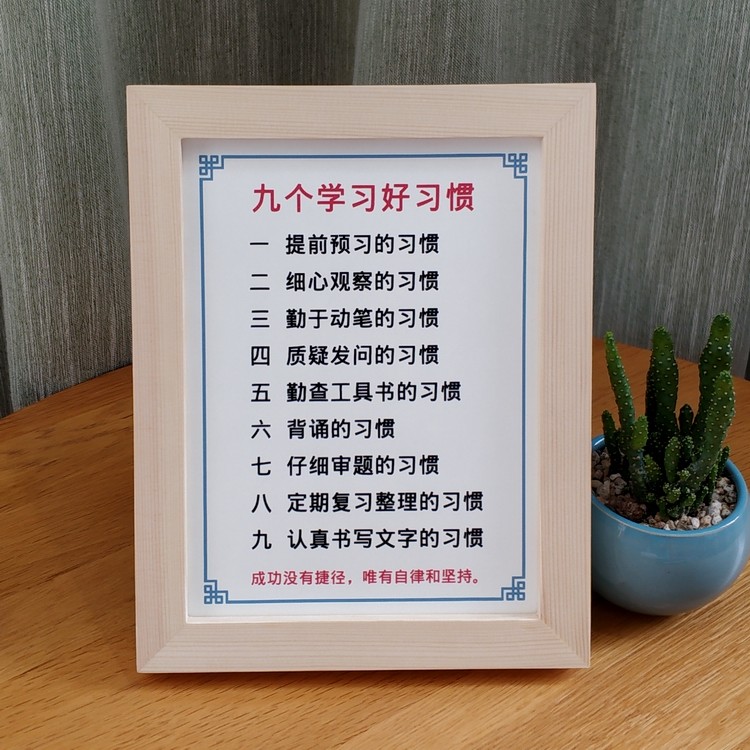 九个学习好习惯
一 提前预习的习惯
二 细心观察的习惯
三 勤于动笔的习惯
四 质疑发问的习惯
五 勤查工具书的习惯
六 背诵的习惯
七 仔细审题的习惯
八 定期复习整理的习惯
九 认真书写文字的习惯
成功没有捷径，唯有自律和坚持。